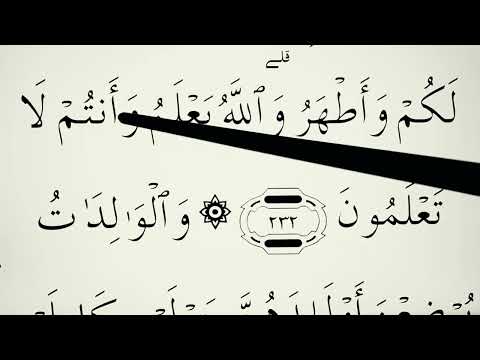 لَكُمْ وَأَطْهَرُ ۗ وَٱللَّهُ يَعْلَمُ وَأَنتُمْ لَا
تَعْلَمُونَ ٢٣٢ ۞ وَٱلْوَٰلِدَٰتُ